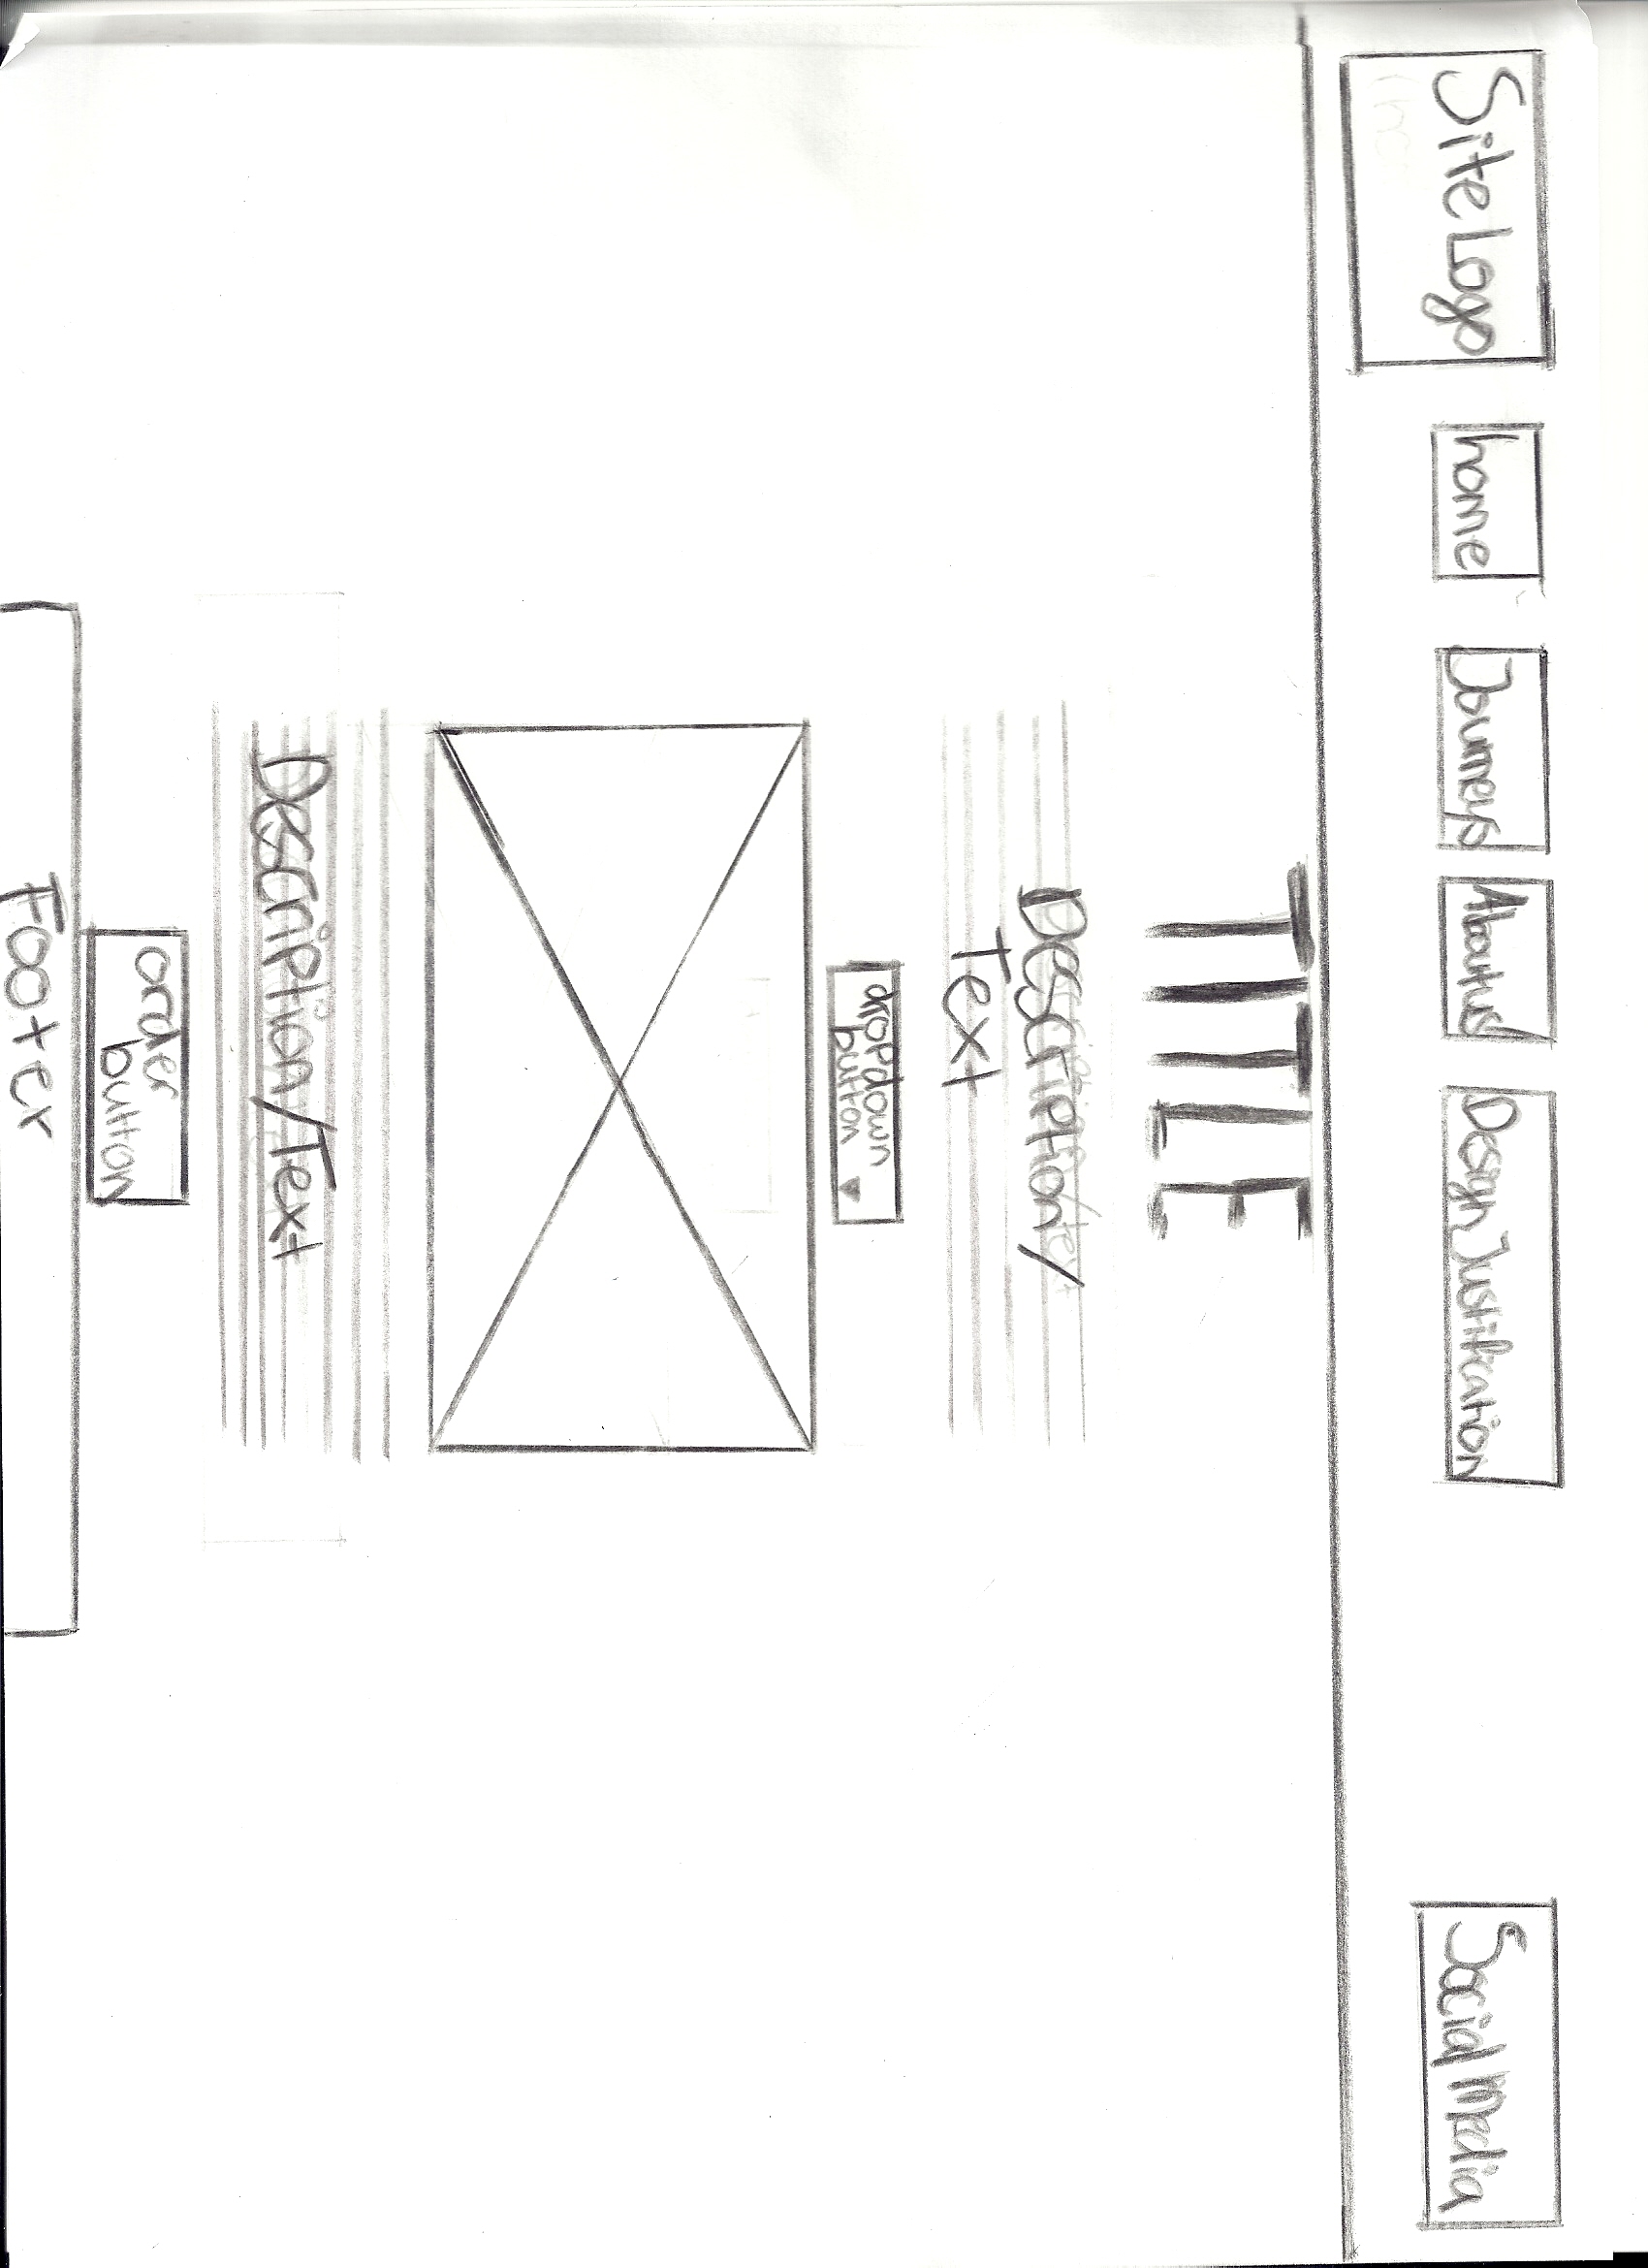 Site Logo
home
Journeys
About us
Design Justification
Social Media
TITLE
Description/
Text
drop down
button
Description/Text
order
button
Footer